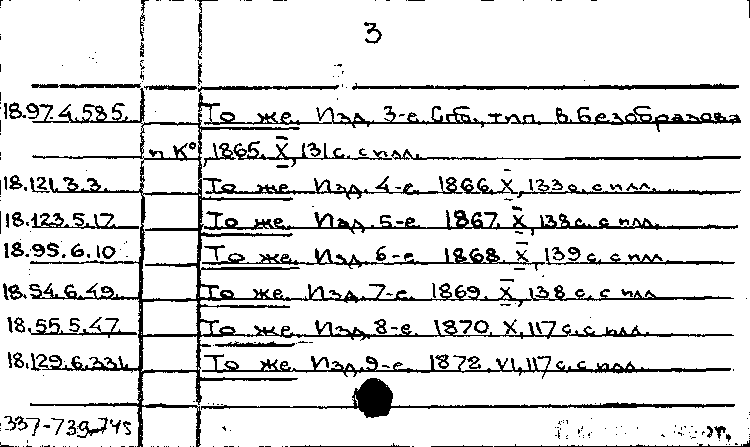 3
18.97.4.585. То же. Изд. 3-е. Спб., тип. В. Безобразова
и К°, 1865. X, 131 с. с илл.
18.121.3.3. То же. Изд. 4-е. 1866. X, 133 с. с илл.
18.123.5.17. То же. Изд. 5-е. 1867. X, 138 с. с илл.
18.95.6.10 То же. Изд. 6-е. 1868. X, 139 с. с илл.
18.54.6.49. То же. Изд. 7-е. 1869. X, 138 с. с илл.
18.55.5.47. То же. Изд. 8-е. 1870. X, 117 с. с илл.
18.129.6.331. То же. Изд. 9-е. 1872. VI, 117 с. с илл.
337-739-745